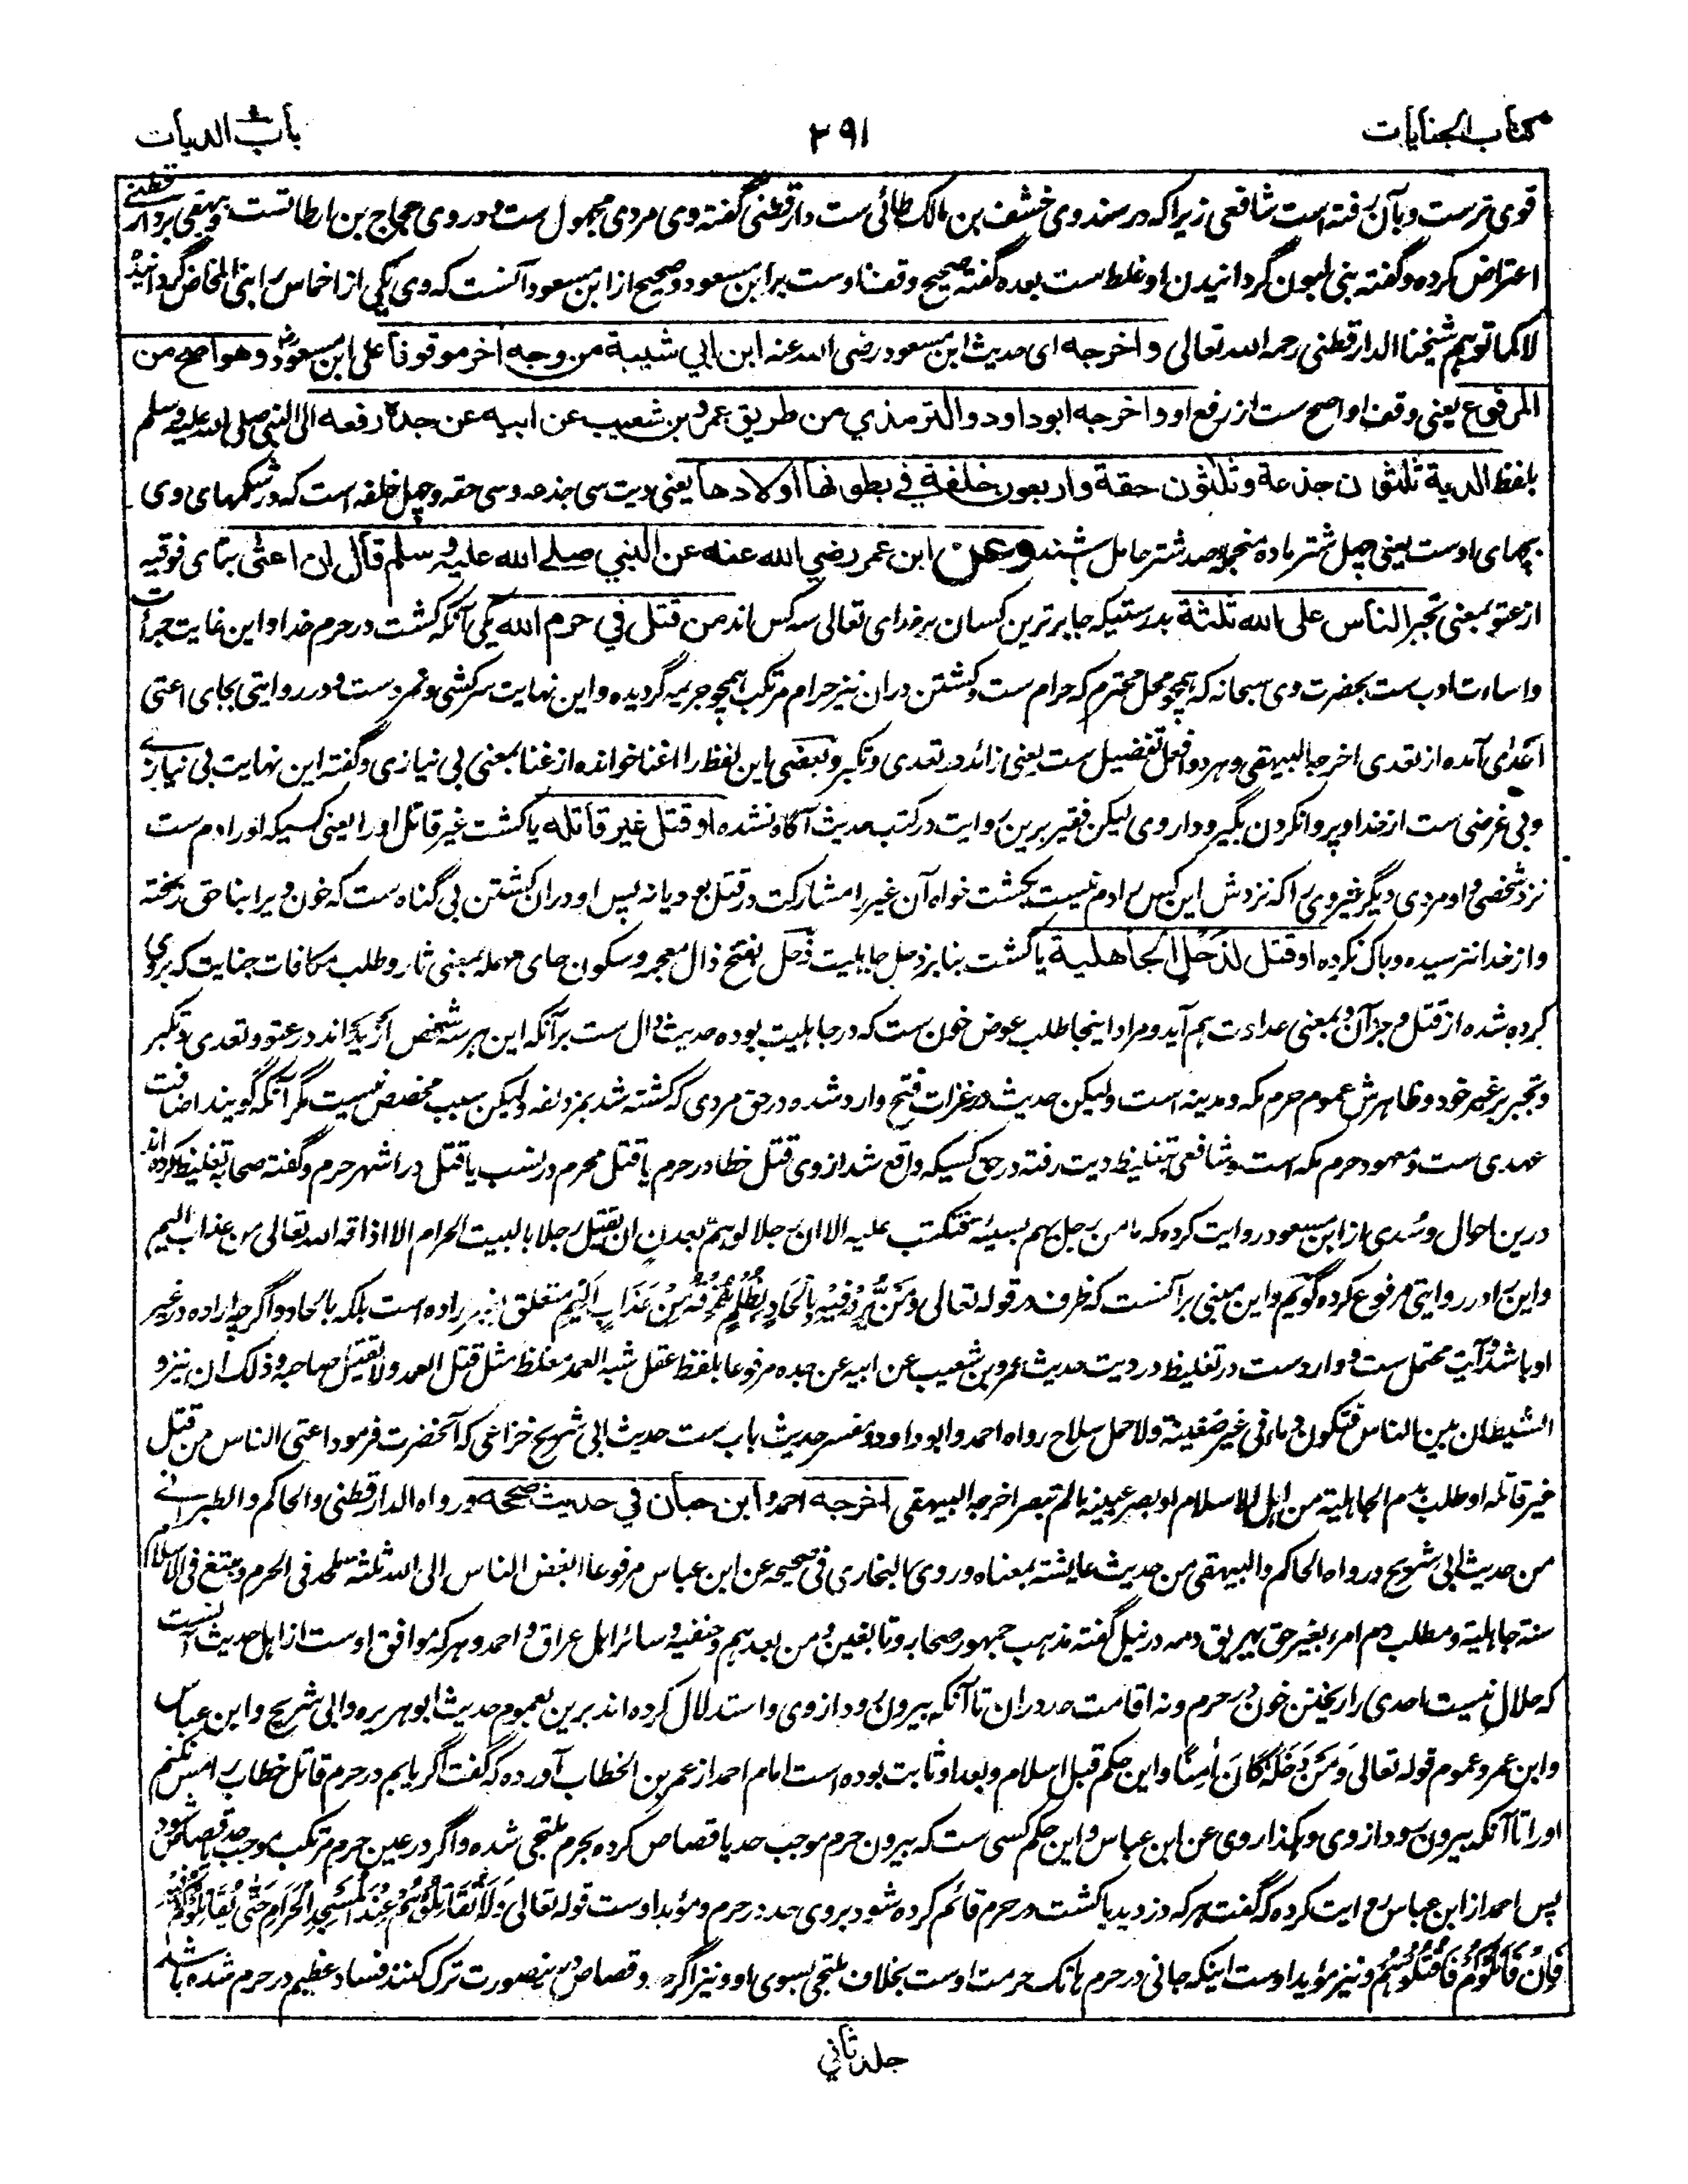 كتاب الجنايات
٣٩١
باب الديات
قوی ترست و بآن رفته است شافعی زیرا که در سند وی خشف بن مالک طائی ست دارقطنی گفته وی مردی مجهول ست و در وی حجاج بن ارطاتست و بیهقی بر دار قطنی
اعتراض کرده و گفته بنی لبون گردانیدن او غلط ست بعده گفته صحیح وقف اوست بر ابن مسعود و صحیح از ابن مسعود آنست که وی یکی از اخماس را بنی المخاض گردانیده
لا کما توهم شیخنا الدارقطنی رحمه الله تعالی و اخرجه ای حدیث ابن مسعود رضی الله عنه ابن ابي شيبة من وجه اخر موقوفا على ابن مسعود وهو اصح من
المرفوع یعنی وقف او اصح ست از رفع او و اخرجه ابو داود والترمذي من طريق عمرو بن شعيب عن ابيه عن جده رفعه الى النبي صلى الله عليه وسلم
بلفظ الدية ثلثون جذعة وثلثون حقة واربعون خلفة في بطونها اولادها یعنی دیت سی جذعه و سی حقه و چهل خلفه است که در شکمهای وی
بچهای اوست یعنی چهل شتر ماده منجمله صد شتر حامل باشند وعن ابن عمر رضي الله عنه عن النبي صلے الله عليه وسلم قال ان اعتى بتای فوقیه
از عتو بمعنی تجبر الناس على الله ثلثة بدرستیکه جابر ترین کسان بر خدای تعالی سه کس اند من قتل في حرم الله یکی آنکه کشت در حرم خدا و این غایت جرأت
و اساءت ادب ست بحضرت وی سبحانه که همچو محل محترم که حرام ست و کشتن دران نیز حرام مرتکب همچو جریمه گردیده و این نهایت سرکشی و تمرد ست و در روایتی بجای اعتی
اعدی آمده از تعدی اخرجها البیهقی و هر دو افعل تفضیل ست یعنی زائد در تعدی و تکبر و بعضی این لفظ را اغنا خوانده از غنا بمعنی بی نیازی و گفته این نهایت بی نیازے
و بی غرضی ست از خدا و پروا نکردن بگیر و دار وی لیکن فقیر برین روایت در کتب حدیث آگاه نشده او قتل غير قاتله یا کشت غیر قاتل او را یعنی کسیکه او را دم ست
نزد شخصی و او مردی دیگر غیر وی را که نزدش این کس را دم نیست بکشت خواه آن غیر را مشارکت در قتل بود یا نه پس او دران کشتن بی گناه ست که خون ویرا بنا حق ریخته
و از خدا نترسیده و باک نکرده او قتل لذحل الجاهلية یا کشت بنا بر ذحل جاهلیت ذحل بفتح ذال معجمه و سکون حای مهمله بمعنی ثار و طلب مکافات جنایت که بروی
کرده شده از قتل و جز آن و بمعنی عداوت هم آید و مراد اینجا طلب عوض خون ست که در جاهلیت بوده حدیث دال ست بر آنکه این هر سه شخص ازید اند در عتو و تعدی و تکبر
و تجبر بر غیر خود و ظاهرش عموم حرم مکه و مدینه است ولیکن حدیث در غزات فتح وارد شده در حق مردی که کشته شد بمزدلفه ولیکن سبب مخصص نیست مگر آنکه گویند اضافت
عهدی ست و معهود حرم مکه است و شافعی بتغلیظ دیت رفته در حق کسیکه واقع شد از وی قتل خطا در حرم یا قتل محرم در نسب یا قتل در اشهر حرم و گفته صحابه تغلیظ کرده اند
درین احوال و سدی از ابن مسعود روایت کرده که ما من رجل یهم بسیئة فتکتب علیه الا ان رجلا لو هم بعدن ان یقتل رجلا بالبیت الحرام الا اذاقه الله تعالی من عذاب الیم
و این را در روایتی مرفوع کرده گویم و این مبنی بر آنست که ظرف در قوله تعالی وَمَنْ يُرِدْ فِيهِ بِإِلْحَادٍ بِظُلْمٍ نُذِقْهُ مِنْ عَذَابٍ أَلِيمٍ متعلق بغیر اراده است بلکه بالحاد و اگر چه اراده در غیر
او باشد و آیت محتمل ست و وارد ست در تغلیظ در دیت حدیث عمرو بن شعیب عن ابیه عن جده مرفوعا بلفظ عقل شبه العمد مغلظ مثل قتل العمد ولا یقتل صاحبه و ذلک ان ینزو
الشیطان بین الناس فتکون دماء فی غیر ضغینة ولا حمل سلاح رواه احمد وابو داود و مفسر حدیث باب ست حدیث ابی شریح خزاعی که آنحضرت فرمود اعتی الناس من قتل
غیر قاتله او طلب بدم الجاهلیة من اهل الاسلام او بصر عینیه ما لم تبصر اخرجه البیهقی اخرجه احمد وابن حبان في حديث صححه و رواه الدارقطنی والحاکم والطبرانے
من حدیث ابی شریح و رواه الحاکم والبیهقی من حدیث عایشة بمعناه و روی البخاری فی صحیحه عن ابن عباس مرفوعا ابغض الناس الی الله ثلثة ملحد فی الحرم ومبتغ فی الاسلام
سنة جاهلیة ومطلب دم امرء بغیر حق لیهریق دمه در نیل گفته مذهب جمهور صحابه و تابعین و من بعدهم و حنفیه و سائر اهل عراق و احمد و هر که موافق اوست از اهل حدیث آنست
که حلال نیست احدی را ریختن خون در حرم و نه اقامت حد دران تا آنکه بیرون رود از وی و استدلال کرده اند برین بعموم حدیث ابو هریره و ابی شریح و ابن عباس
و ابن عمر و عموم قوله تعالی وَمَنْ دَخَلَهُ كَانَ آمِنًا و این حکم قبل اسلام و بعد او ثابت بوده است امام احمد از عمر بن الخطاب آورده که گفت اگر یابم در حرم قاتل خطاب را مس نکنم
او را تا آنکه بیرون رود از وی و هکذا روی عن ابن عباس و این حکم کسی ست که بیرون حرم موجب حد یا قصاص کرده بحرم ملتجی شده و اگر در عین حرم مرتکب موجب حد یا قصاص شود
پس احمد از ابن عباس روایت کرده که گفت هر که دزدید یا کشت در حرم قائم کرده شود بروی حد در حرم و مؤید اوست قوله تعالی وَلَا تُقَاتِلُوهُمْ عِنْدَ الْمَسْجِدِ الْحَرَامِ حَتَّى يُقَاتِلُوكُمْ فِيهِ
فَإِنْ قَاتَلُوكُمْ فَاقْتُلُوهُمْ و نیز مؤید اوست اینکه جانی در حرم هاتک حرمت اوست بخلاف ملتجی بسوی او و نیز اگر حد و قصاص درین صورت ترک کنند فساد عظیم در حرم شده باشد
جلد ثاني